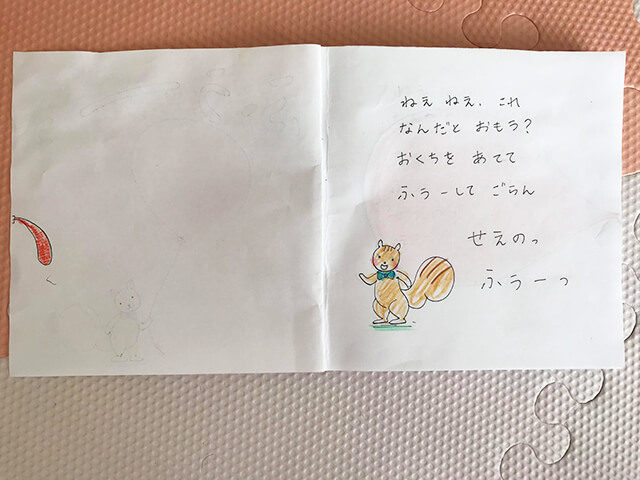 ねぇ ねぇ、これ
なんだと おもう?
おくちを あてて
ふぅーして ごらん
せえのっ
ふぅーっ